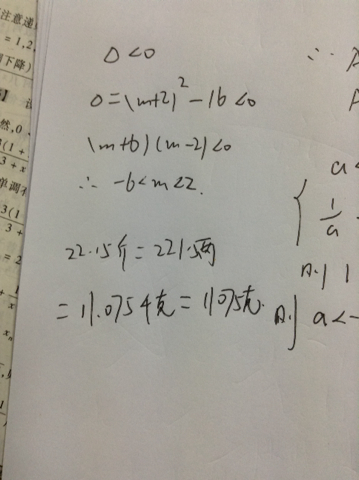 注意递
= 1,2,
△<0
△=(m+2)²-16<0
(m+6)(m-2)<0
∴ -6<m<2.
22.15斤=221.5两
=11.075千克=11075克.
∴
a<
1/a
则
则 a<-
然,0
3(1+
3+x
单调
3(1
3+
= 2